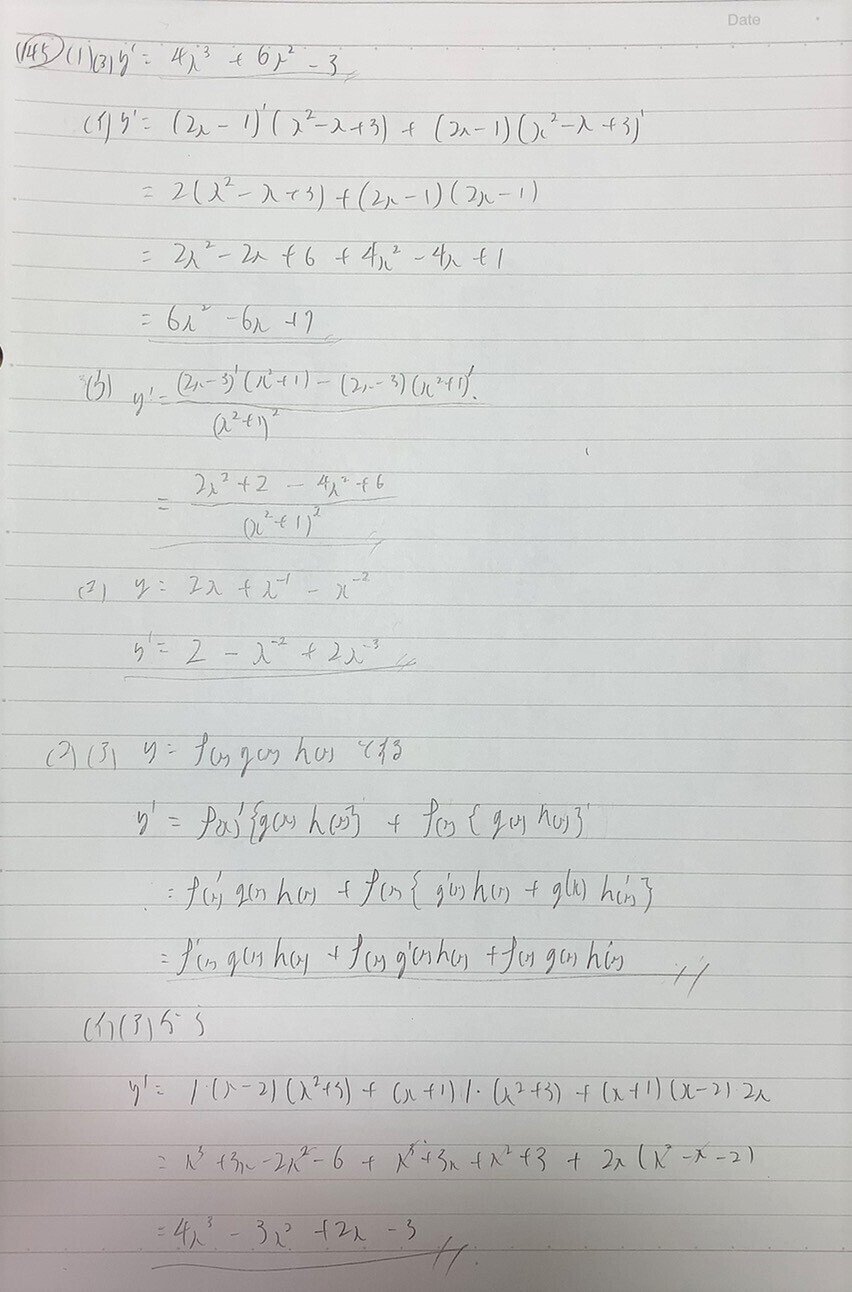 Date
(145) (1)(ア) y' = 4x³ + 6x² - 3
(イ) y' = (2x - 1)'(x² - x + 3) + (2x - 1)(x² - x + 3)'
= 2(x² - x + 3) + (2x - 1)(2x - 1)
= 2x² - 2x + 6 + 4x² - 4x + 1
= 6x² - 6x + 7
(ウ) y' = (2x - 3)'(x² + 1) - (2x - 3)(x² + 1)' / (x² + 1)²
= 2x² + 2 - 4x² + 6 / (x² + 1)²
y = 2x + x⁻¹ - x⁻²
y' = 2 - x⁻² + 2x⁻³
(2)(ア) y = f(x) g(x) h(x) とする
y' = f(x)'{g(x) h(x)} + f(x){g(x) h(x)}'
= f'(x) g(x) h(x) + f(x){g'(x) h(x) + g(x) h'(x)}
= f'(x) g(x) h(x) + f(x) g'(x) h(x) + f(x) g(x) h'(x)
(イ)(ア)より
y' = 1·(x - 2)(x² + 3) + (x + 1) 1·(x² + 3) + (x + 1)(x - 2) 2x
= x³ + 3x - 2x² - 6 + x³ + 3x + x² + 3 + 2x(x² - x - 2)
= 4x³ - 3x² + 2x - 3